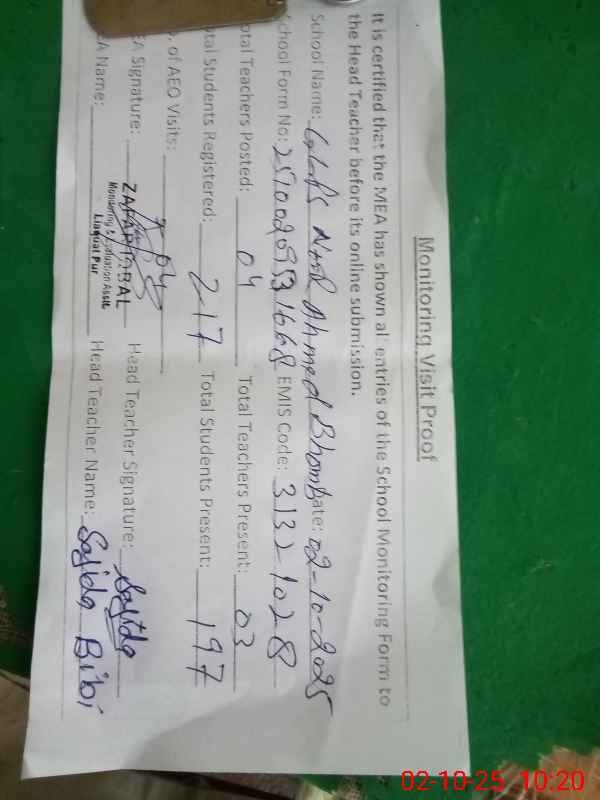 Monitoring Visit Proof
It is certified that the MEA has shown all entries of the School Monitoring Form to
the Head Teacher before its online submission.
School Name: Ahmed Date: 02-10-2025
School Form No: EMIS Code: 31321028
otal Teachers Posted: 04 Total Teachers Present: 03
otal Students Registered: 217 Total Students Present: 197
. of AEO Visits: 04
EA Signature: Head Teacher Signature: Sajida
ZAFAR IQBAL
Monitoring & Evaluation Asstt.
Liaquat Pur
EA Name: Head Teacher Name: Sajida Bibi
02-10-25 10:20